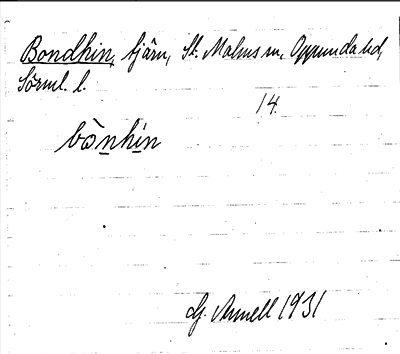 Bondhin, tjärn, St. Malms sn, Oppunda hd,
Sörml. l.
14.
bònhin
G. Annell 1931